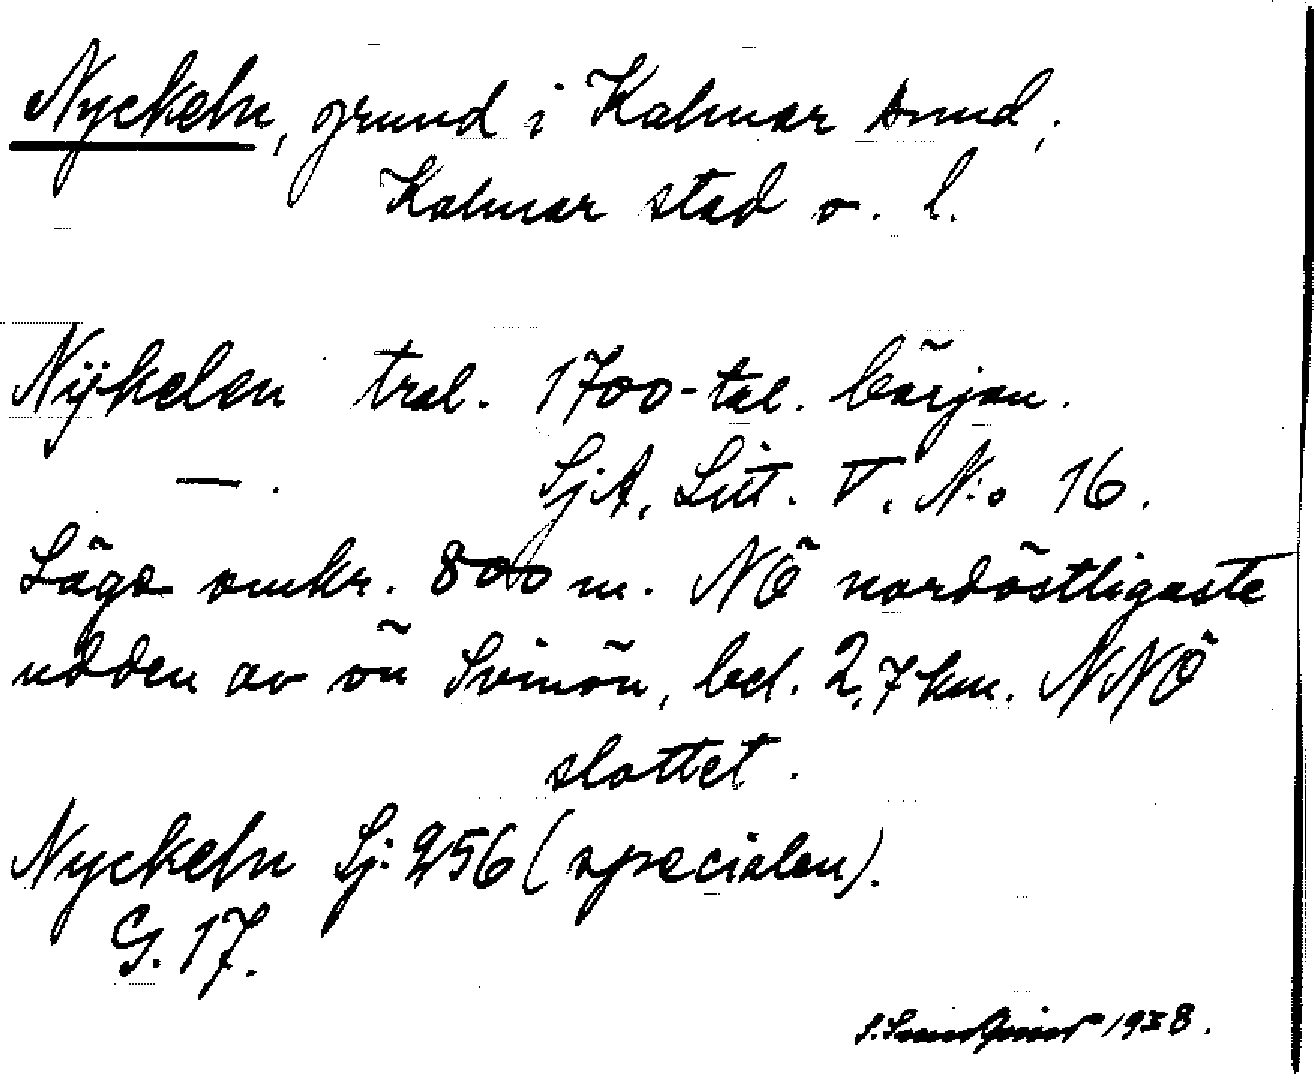 Nyckeln, grund i Kalmar sund,
Kalmar stad o. l.
Nÿkelen tral. 1700-tal. början.
—. SjA, Litt. V. N:o 16.
Läge omkr. 800 m. NÖ nordöstligaste
udden av ön Svinön, bel. 2,7 km. NNÖ
slottet.
Nyckeln Sj: 256 (specialen).
G. 17.
1938.